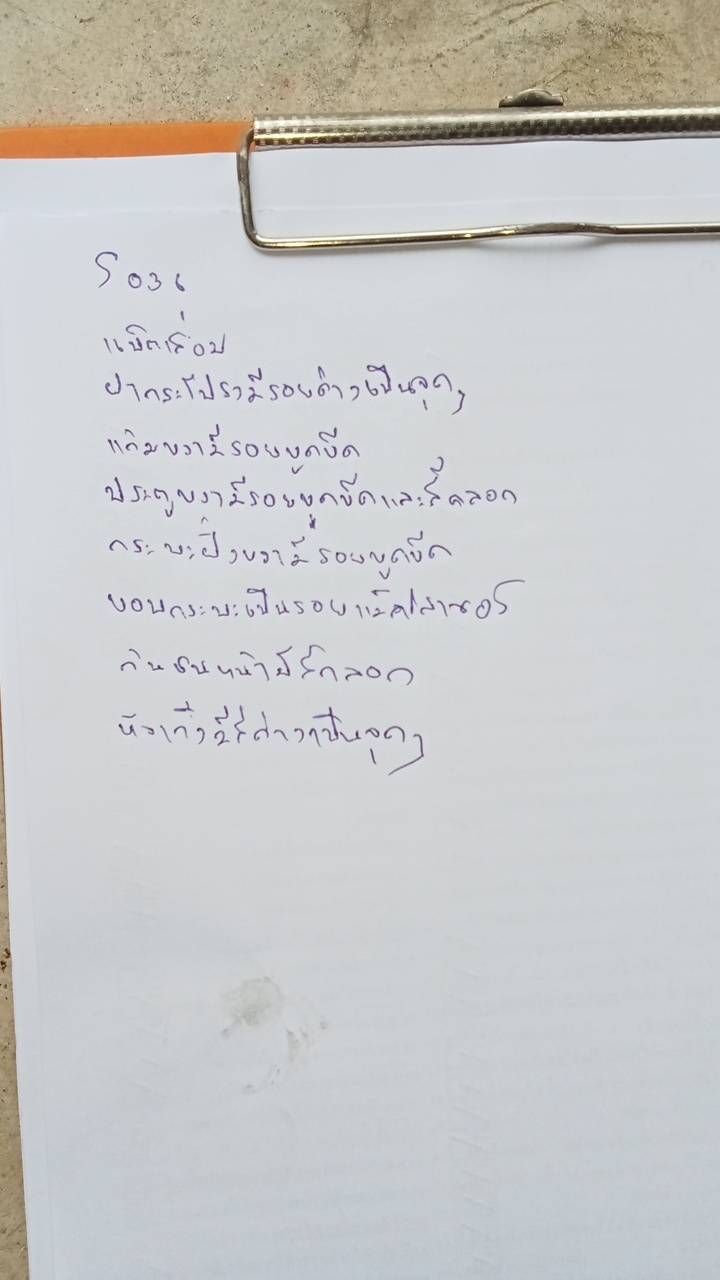 ร 036
แบ็ตเสื่อม
ฝากระโปรงมีรอยด่างเป็นจุดๆ
แก้มขวามีรอยขูดขีด
ประตูขวามีรอยขูดขีดและสีลอก
กระบะฝั่งขวามีรอยขูดขีด
ขอบกระบะเป็นรอยแม็คไลนเนอร์
กันชนหน้ามีสีลอก
หัวเก๋งมีสีด่างเป็นจุดๆ